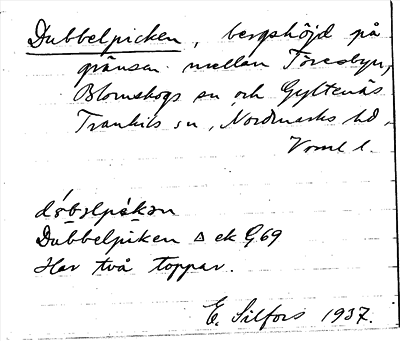 Dubbelpicken, bergshöjd på
gränsen mellan Töresbyn,
Blomskogs sn och Gyltenäs
Trankils sn, Nordmarks hd,
Vrml l.
Dubbelpiken Δ ek G.69
Har två toppar.
E. Silfors 1937.